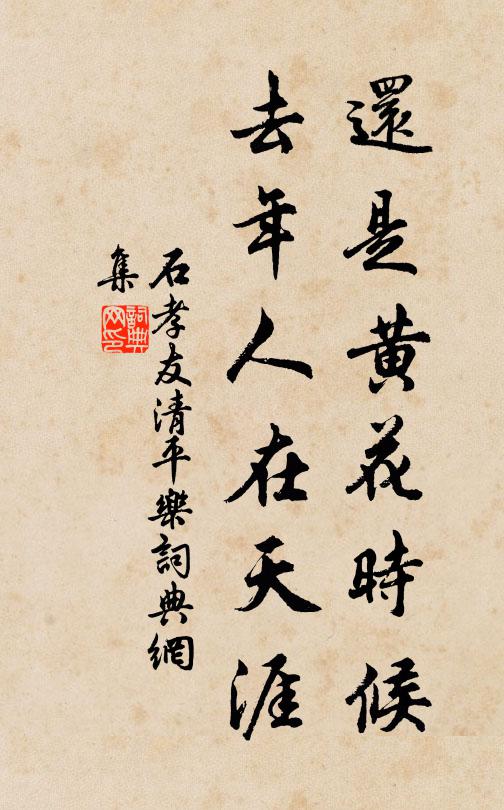 還是黃花時候
去年人在天涯
石孝友清平樂詞典網
集
詞典网印